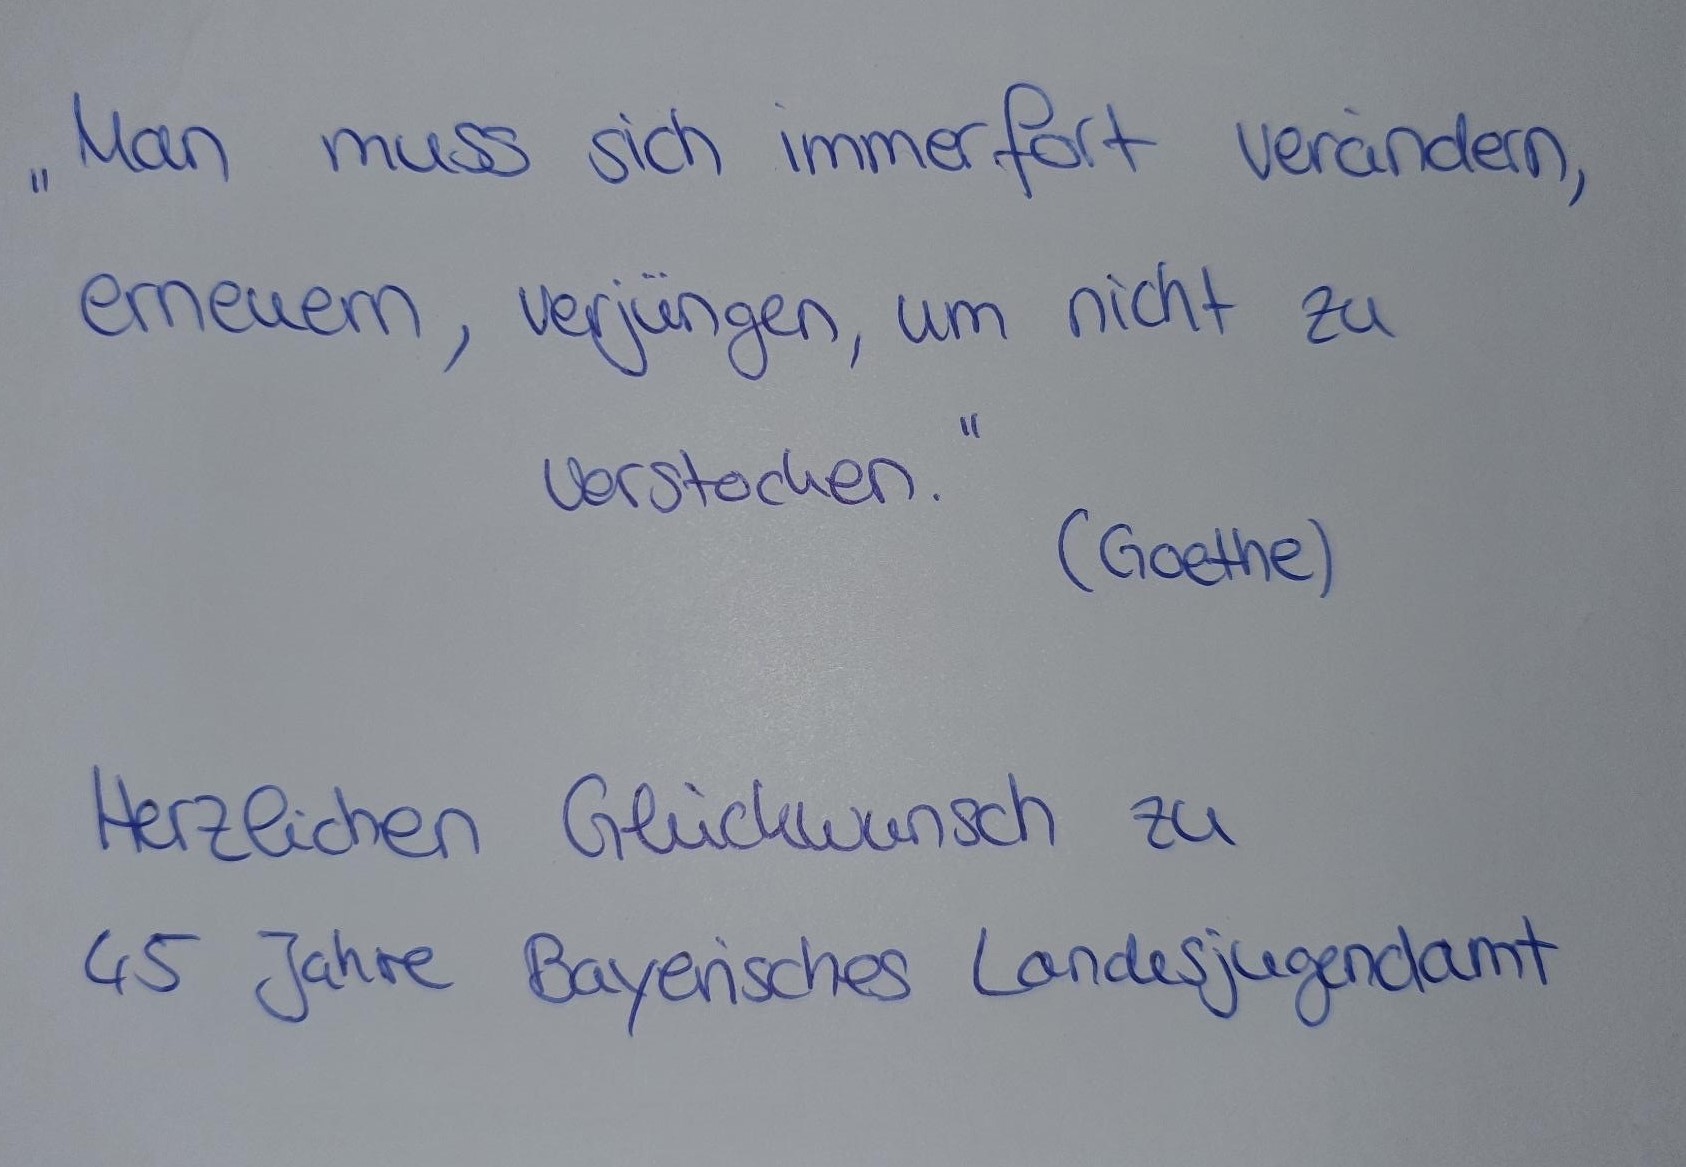 „Man muss sich immerfort verändern,
erneuern, verjüngen, um nicht zu
verstocken."
(Goethe)
Herzlichen Glückwunsch zu
45 Jahre Bayerisches Landesjugendamt